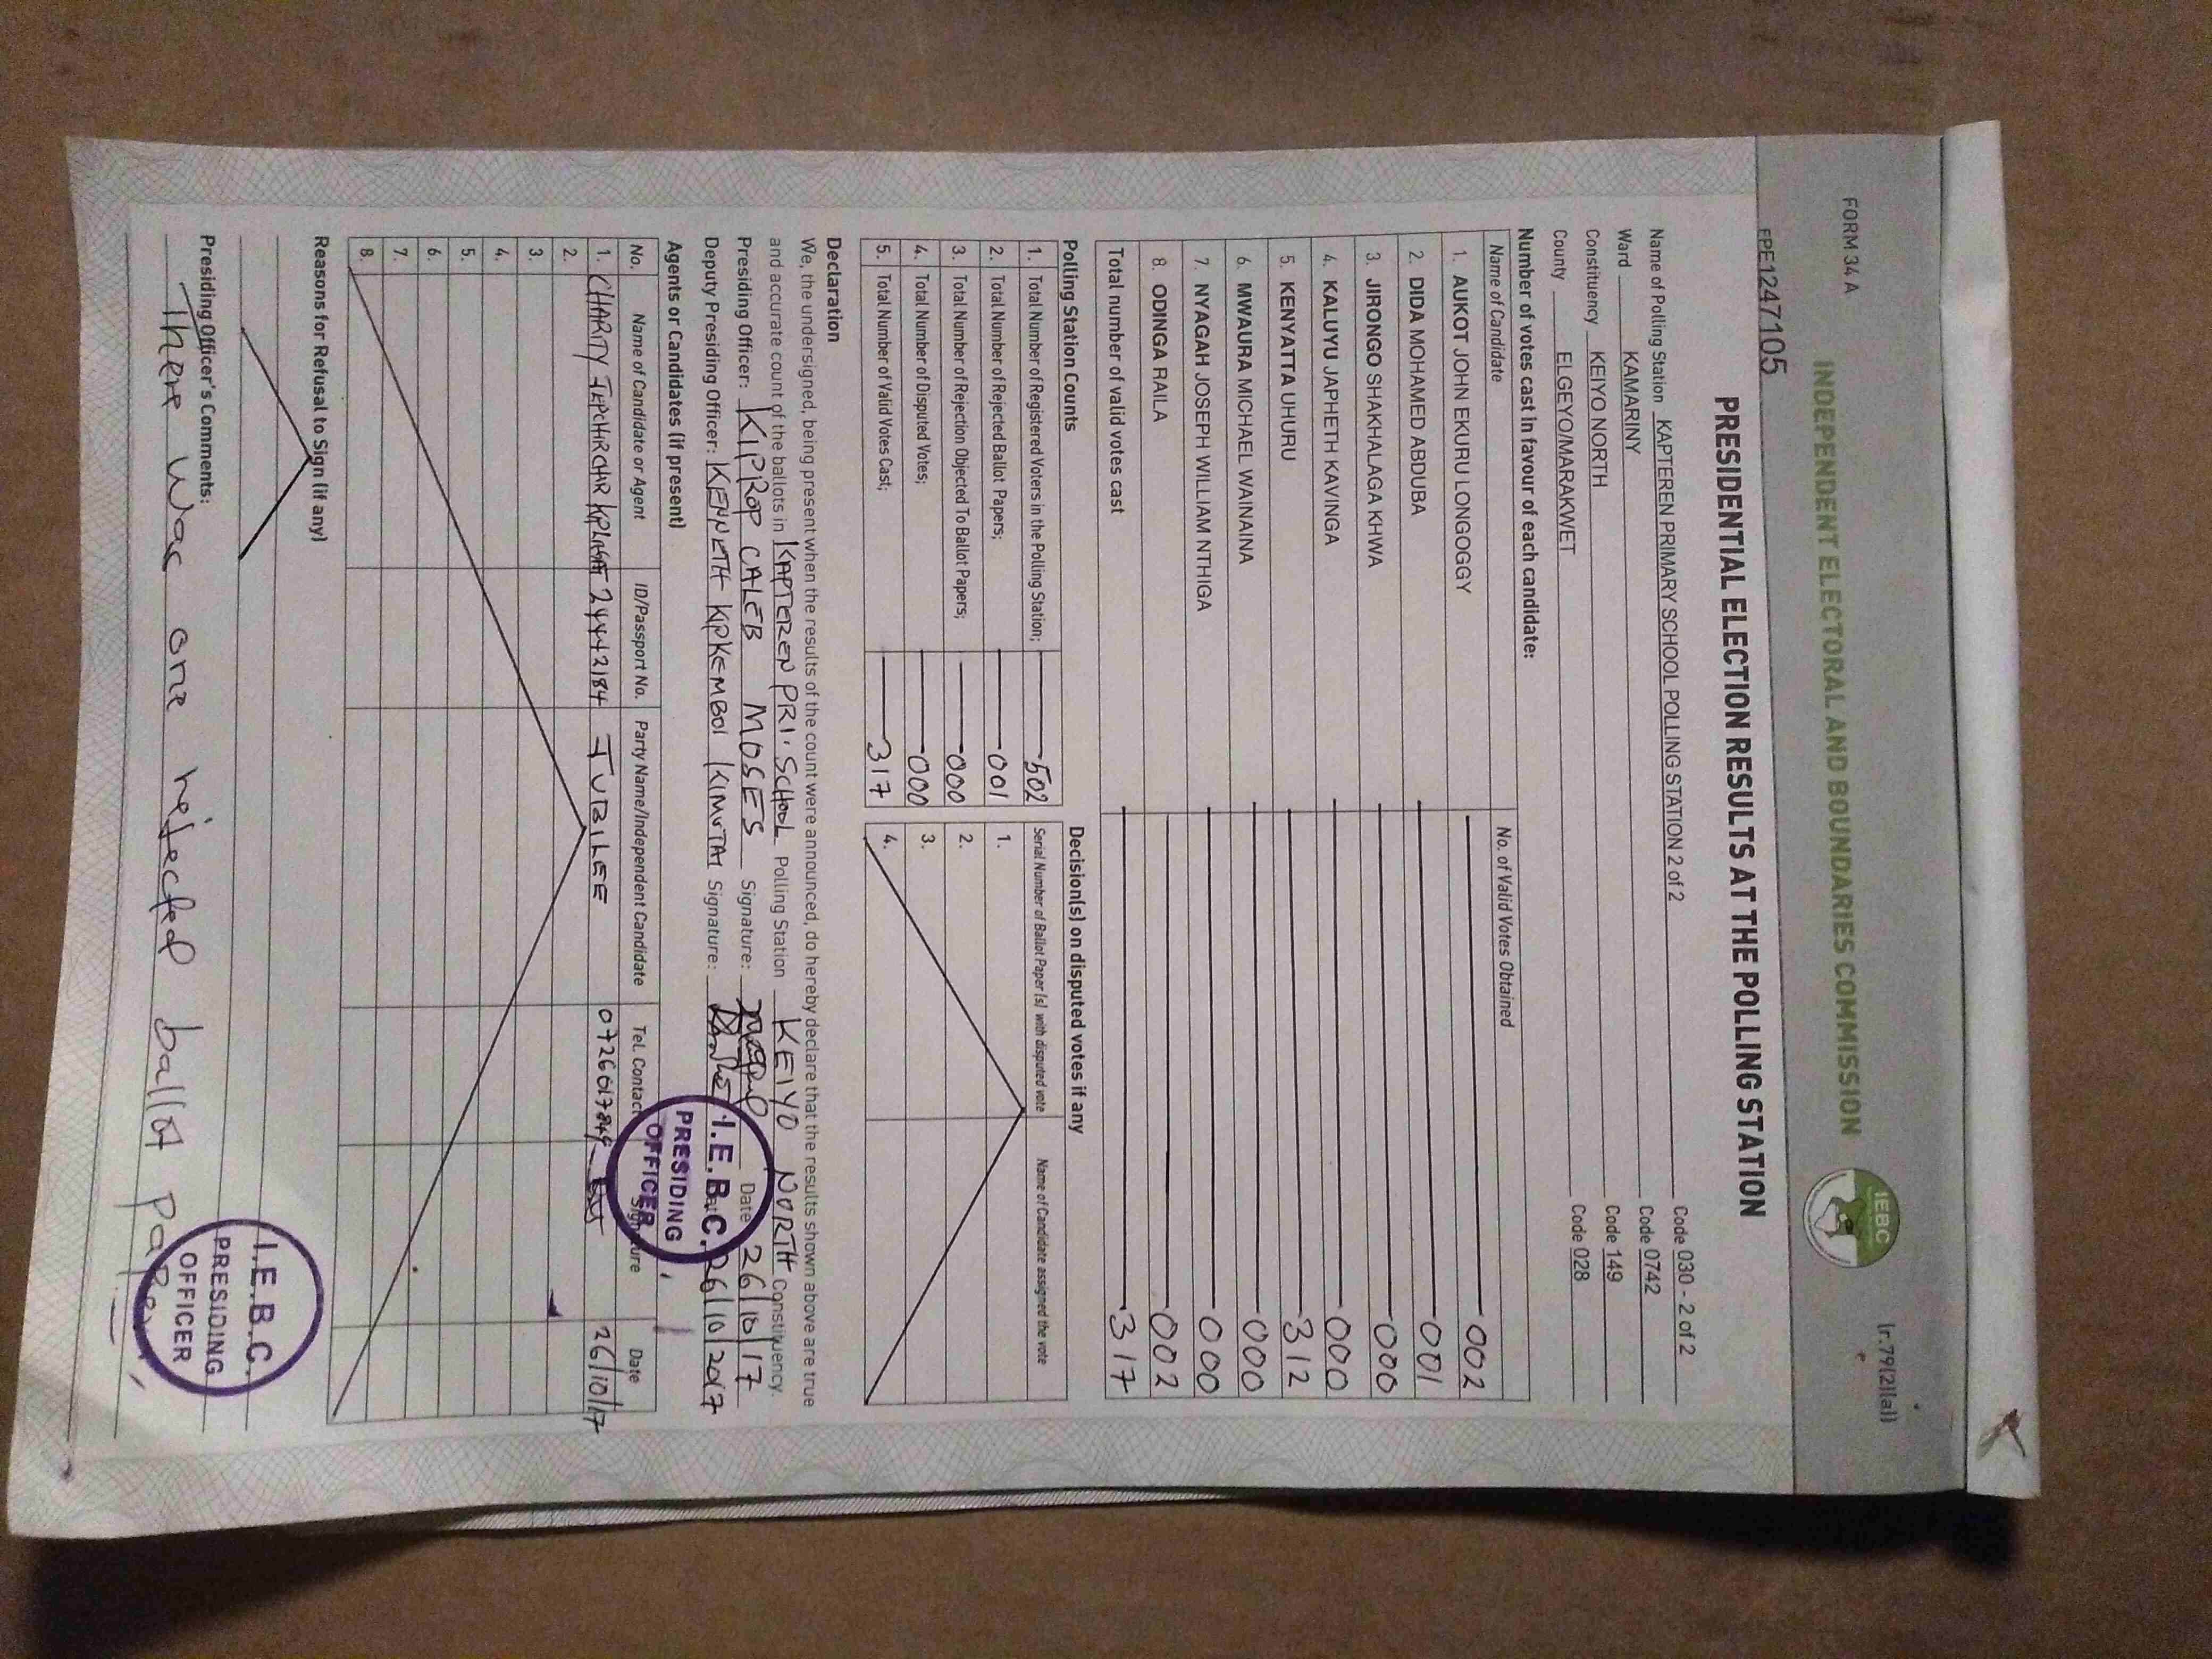 FORM 34 A
(r.79(2)(a))
INDEPENDENT ELECTORAL AND BOUNDARIES COMMISSION
IEBC
FPE1247105
PRESIDENTIAL ELECTION RESULTS AT THE POLLING STATION
Name of Polling Station KAPTEREN PRIMARY SCHOOL POLLING STATION 2 of 2 Code 030 - 2 of 2
Ward KAMARINY Code 0742
Constituency KEIYO NORTH Code 149
County ELGEYO/MARAKWET Code 028
Number of votes cast in favour of each candidate:
Name of Candidate No. of Valid Votes Obtained
1. AUKOT JOHN EKURU LONGOGGY 002
2. DIDA MOHAMED ABDUBA 001
3. JIRONGO SHAKHALAGA KHWA 000
4. KALUYU JAPHETH KAVINGA 000
5. KENYATTA UHURU 312
6. MWAURA MICHAEL WAINAINA 000
7. NYAGAH JOSEPH WILLIAM NTHIGA 000
8. ODINGA RAILA 002
Total number of valid votes cast 317
Polling Station Counts
1. Total Number of Registered Voters in the Polling Station; 502
2. Total Number of Rejected Ballot Papers; 001
3. Total Number of Rejection Objected To Ballot Papers; 000
4. Total Number of Disputed Votes; 000
5. Total Number of Valid Votes Cast; 317
Decision(s) on disputed votes if any
Serial Number of Ballot Paper (s) with disputed vote Name of Candidate assigned the vote
1.
2.
3.
4.
Declaration
We, the undersigned, being present when the results of the count were announced, do hereby declare that the results shown above are true
and accurate count of the ballots in KAPTEREN PRI. SCHOOL Polling Station KEIYO NORTH Constituency.
Presiding Officer: KIPROP CALEB MOSES Signature: Date 26/10/17
Deputy Presiding Officer: KENNETH KIPKEMBOI KIMUTAI Signature: 26/10/2017
I.E.B.C.
PRESIDING
OFFICER
Agents or Candidates (if present)
No. Name of Candidate or Agent ID/Passport No. Party Name/Independent Candidate Tel. Contact Signature Date
1. CHARITY 24442184 JUBILEE 26/10/17
2.
3.
4.
5.
6.
7.
8.
Reasons for Refusal to Sign (if any)
Presiding Officer's Comments:
There was one rejected ballot paper.
I.E.B.C.
PRESIDING
OFFICER